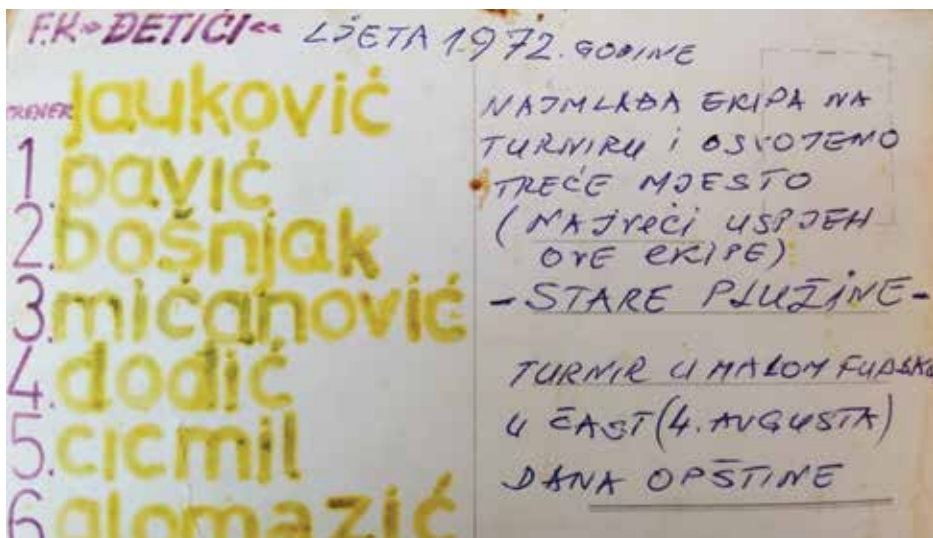 F.K »ĐETIĆI« LJETA 1972. GODINE
TRENER jauković
1. pavić
2. bošnjak
3. mićanović
4. dodić
5. cicmil
6 glomazić
NAJMLAĐA EKIPA NA
TURNIRU i OSVOJENO
TREĆE MJESTO
(NAJVEĆI USPJEH
OVE EKIPE)
- STARE PLUŽINE -
TURNIR U MALOM FUDBALU
U ČAST (4. AVGUSTA)
DANA OPŠTINE